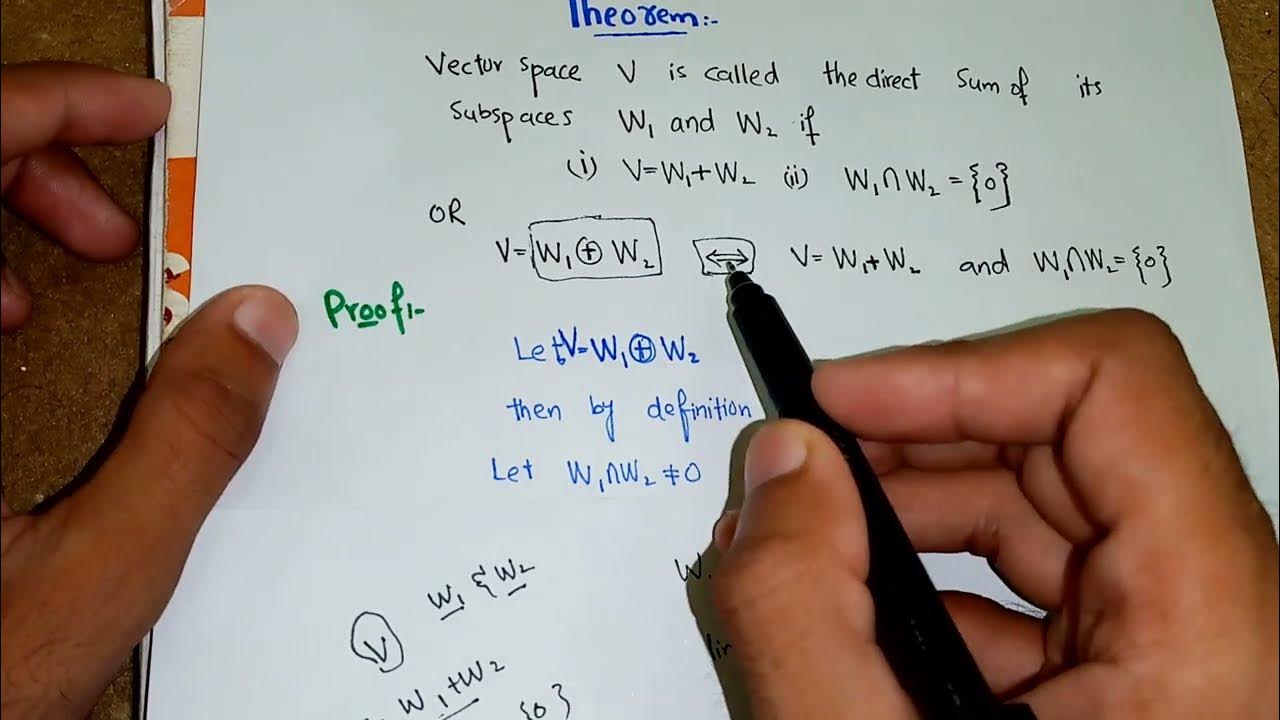 Theorem:-
Vector space V is called the direct sum of its
subspaces W₁ and W₂ if
(i) V=W₁+W₂ (ii) W₁∩W₂={0}
OR
V=W₁⊕W₂ ⇔ V=W₁+W₂ and W₁∩W₂={0}
Proof:-
Let V=W₁⊕W₂
then by definition
Let W₁∩W₂≠0
W₁ & W₂
V
W₁+W₂
{0}